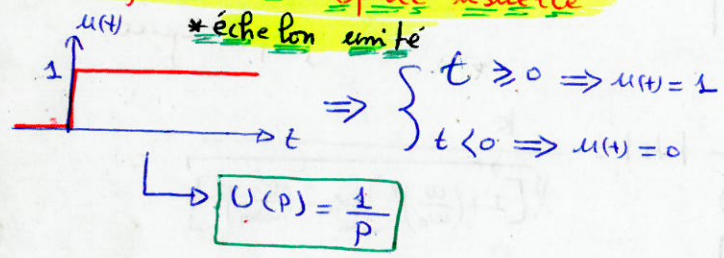 usuelle
* échelon unité
u(t)
1
t
⇒ { t ≥ 0 ⇒ u(t) = 1
t < 0 ⇒ u(t) = 0
U(P) = 1/P